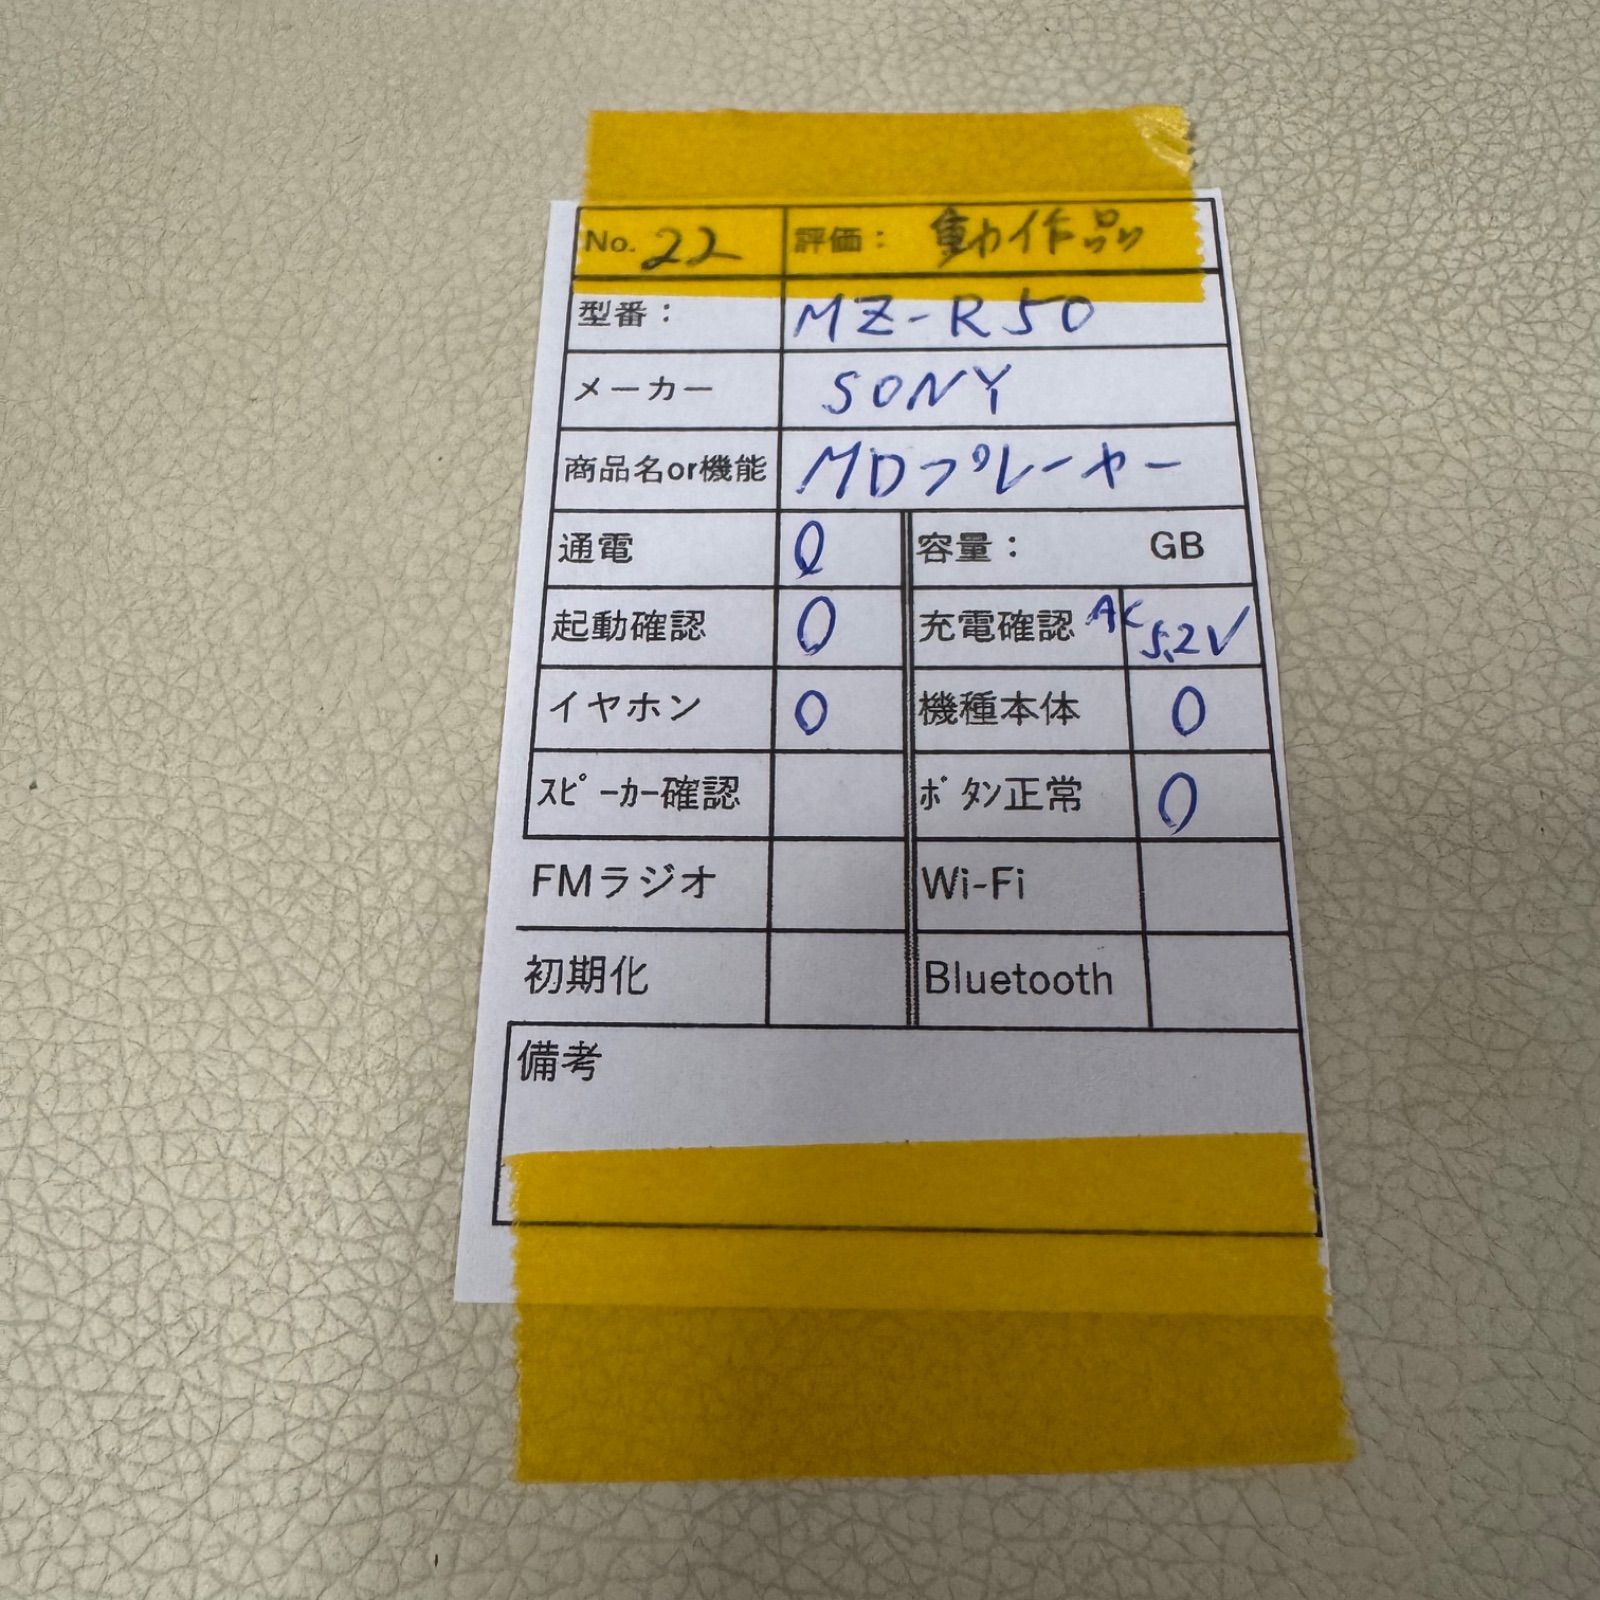 No. 22 評価： 動作品
型番： MZ-R50
メーカー SONY
商品名or機能 MDプレーヤー
通電 O 容量： GB
起動確認 O 充電確認 AC 5.2V
イヤホン O 機種本体 O
ｽﾋﾟｰｶｰ確認 ﾎﾞﾀﾝ正常 O
FMラジオ Wi-Fi
初期化 Bluetooth
備考